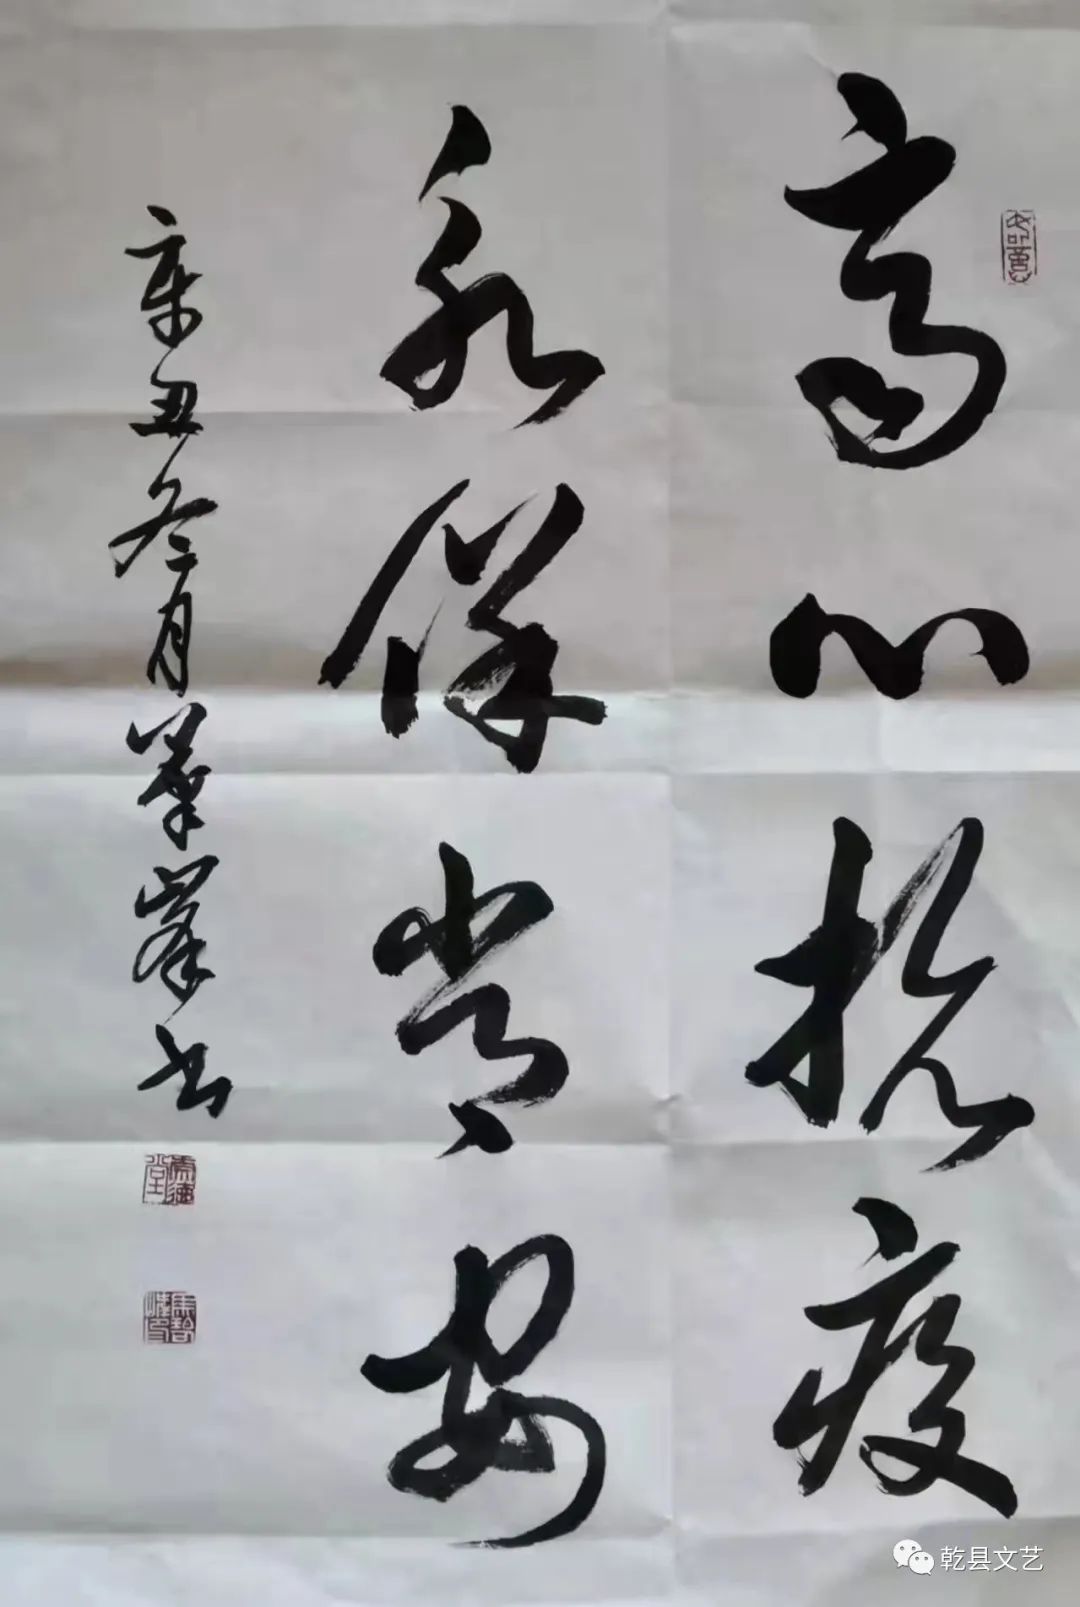 齐心抗疫
永保常安
辛丑冬月峯书
乾县文艺